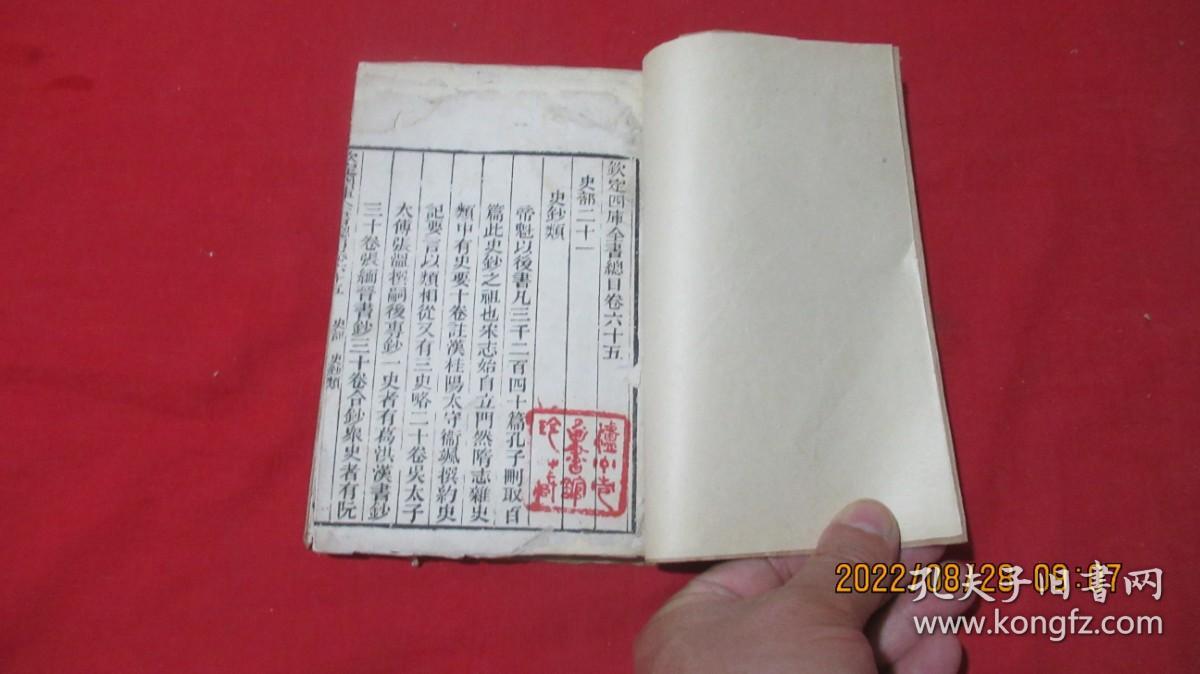 欽定四庫全書總目卷六十五
史部二十一
史鈔類
帝魁以後書凡三千二百四十篇孔子刪取百
篇此史鈔之祖也宋志始自立門然隋志雜史
類中有史要十卷註漢桂陽太守衛颯撰約史
記要言以類相從又有三史略二十卷吳太子
太傅張溫撰嗣後專鈔一史者有葛洪漢書鈔
三十卷張緬晉書鈔三十卷合鈔眾史者有阮
史部 史鈔類
2022/08/2
孔夫子旧书网
www.kongfz.com